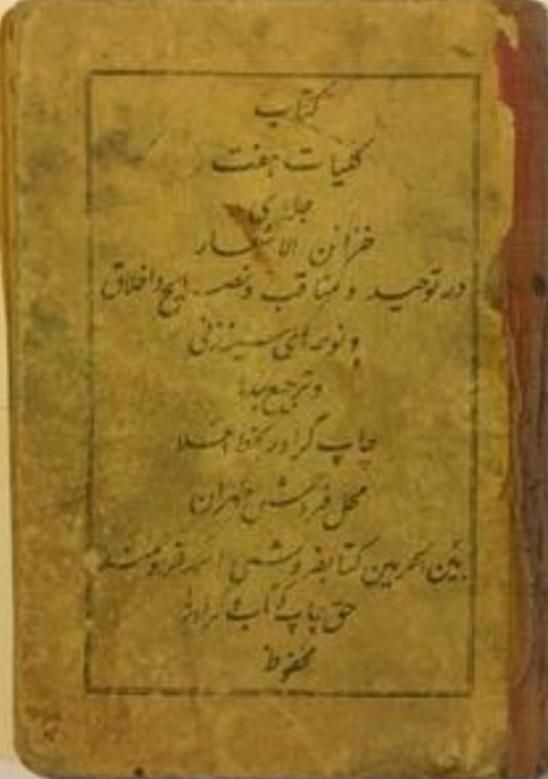 کتاب
کلیات هفت
جلدی
خزائن الاشعار
در توحید و مناقب و نصایح و اخلاق
و نوحه‌های سینه زنی
و ترجیع بندها
چاپ گراور بخط اعلا
محل فروش طهران
بین الحرمین کتابفروشی
حق چاپ کتاب و گراور
محفوظ